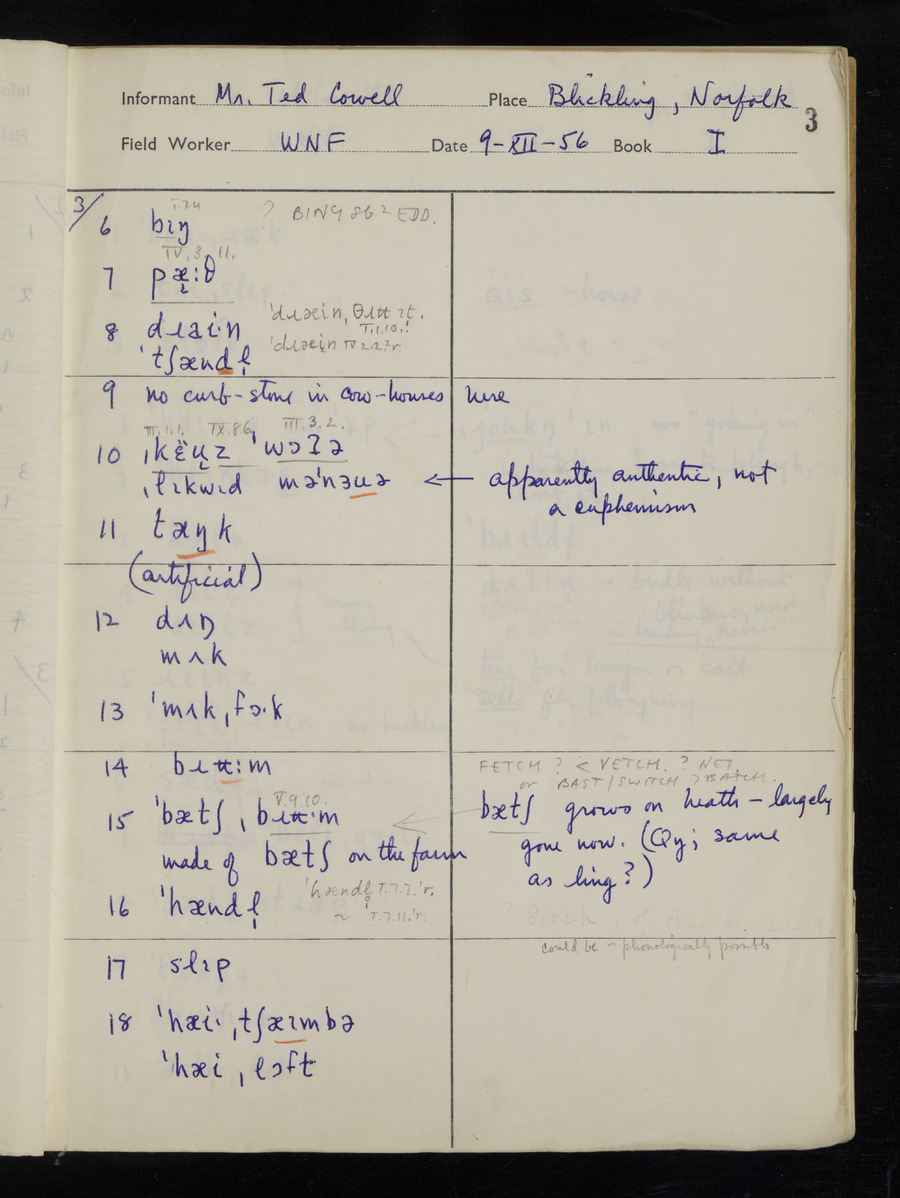 Informant Mr. Ted Cowell Place Blickling, Norfolk
3
Field Worker WNF Date 9-XII-56 Book I
3/
I.7.4
6 bɪŋ ? BING sb² EDD.
IV.3.11.
7 pæ̞:θ
8 dɹain 'dɹæin,
I.1.10.!
'tʃændl̩ 'dɹæin IV.2.2.ºr.
9 no curb-stone in cow-houses here
III.1.1. IX.8.6. III.3.2.
10 ˌkɛ̈ʉz 'wɔʔə
ˌlɪkwɪd mə'nɔʉə ← apparently authentic, not
a euphemism
11 tæŋk
(artificial)
12 dʌŋ
mʌk
13 'mʌkˌfɔ·k
14 bɪʉ:m FETCH ? < VETCH. ? NED.
or BAST/SWITCH > BATCH.
V.9.10.
15 'bætʃˌbɪʉ·m bætʃ grows on heath – largely
made of bætʃ on the farm gone now. (Qy; same
as ling?)
16 'hændl̩ 'hændl̩ I.7.7.'r.
~ I.7.11.'r.
could be – phonologically possible
17 slɪp
18 'hæi·ˌtʃæɪmbə
'hæiˌlɔft